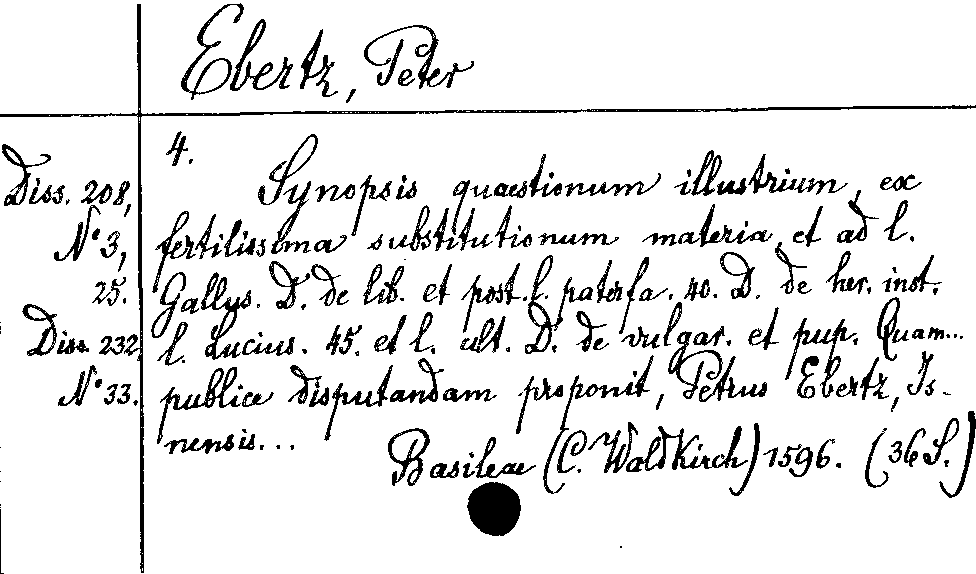 Ebertz, Peter
4.
Diss. 208,
No 3,
25.
Diss. 232,
No 33.
Synopsis quaestionum illustrium, ex
fertilissima substitutionum materia, et ad l.
Gallus. D. de lib. et post. l. paterfa. 40. D. de her. inst.
l. Lucius. 45. et l. ult. D. de vulgar. et pup. Quam...
publice disputandam proponit, Petrus Ebertz, Is-
nensis...
Basileae (C. Waldkirch) 1596. (36 S.)